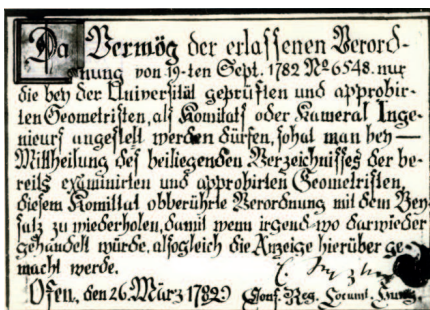 Da Vermög der erlassenen Verord-
nung von 19-ten Sept. 1782 No 6548. nur
die bey der Universität geprüften und approbir-
ten Geometristen, als Komitats oder Kameral Inge-
nieurs angestelt werden dürfen, sohat man bey —
Mittheilung des beiliegenden Verzeichnisses der be-
reits examinirten und approbirten Geometristen,
diesem Komittat obberührte Verordnung mit dem Bey-
satz zu wiederholen, damit wenn irgend wo darwieder
gehandelt würde, alsogleich die Anzeige hierüber ge-
macht werde.
Ofen, den 26. März 1789 Cons. Reg. Locumt. Hung.